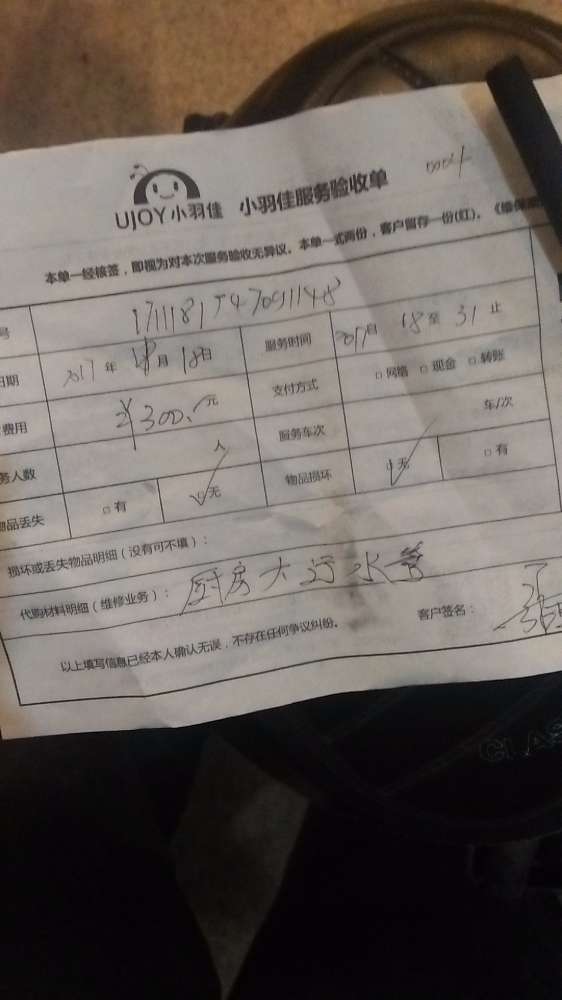 UJOY小羽佳 小羽佳服务验收单 0004
本单一经核签，即视为对本次服务验收无异议。本单一式两份，客户留存一份(红)。《维保
号 1711181547091148
日期 2017年 月18日 服务时间 18至31止
费用 ¥300.元 支付方式 □网络 □现金 □转账
务人数 人 服务车次 车/次
物品丢失 □有 ☑无 物品损坏 ☑无 □有
损坏或丢失物品明细（没有可不填）：
代购材料明细（维修业务）： 厨房大污水管
以上填写信息已经本人确认无误，不存在任何争议纠纷。 客户签名：
CLAS